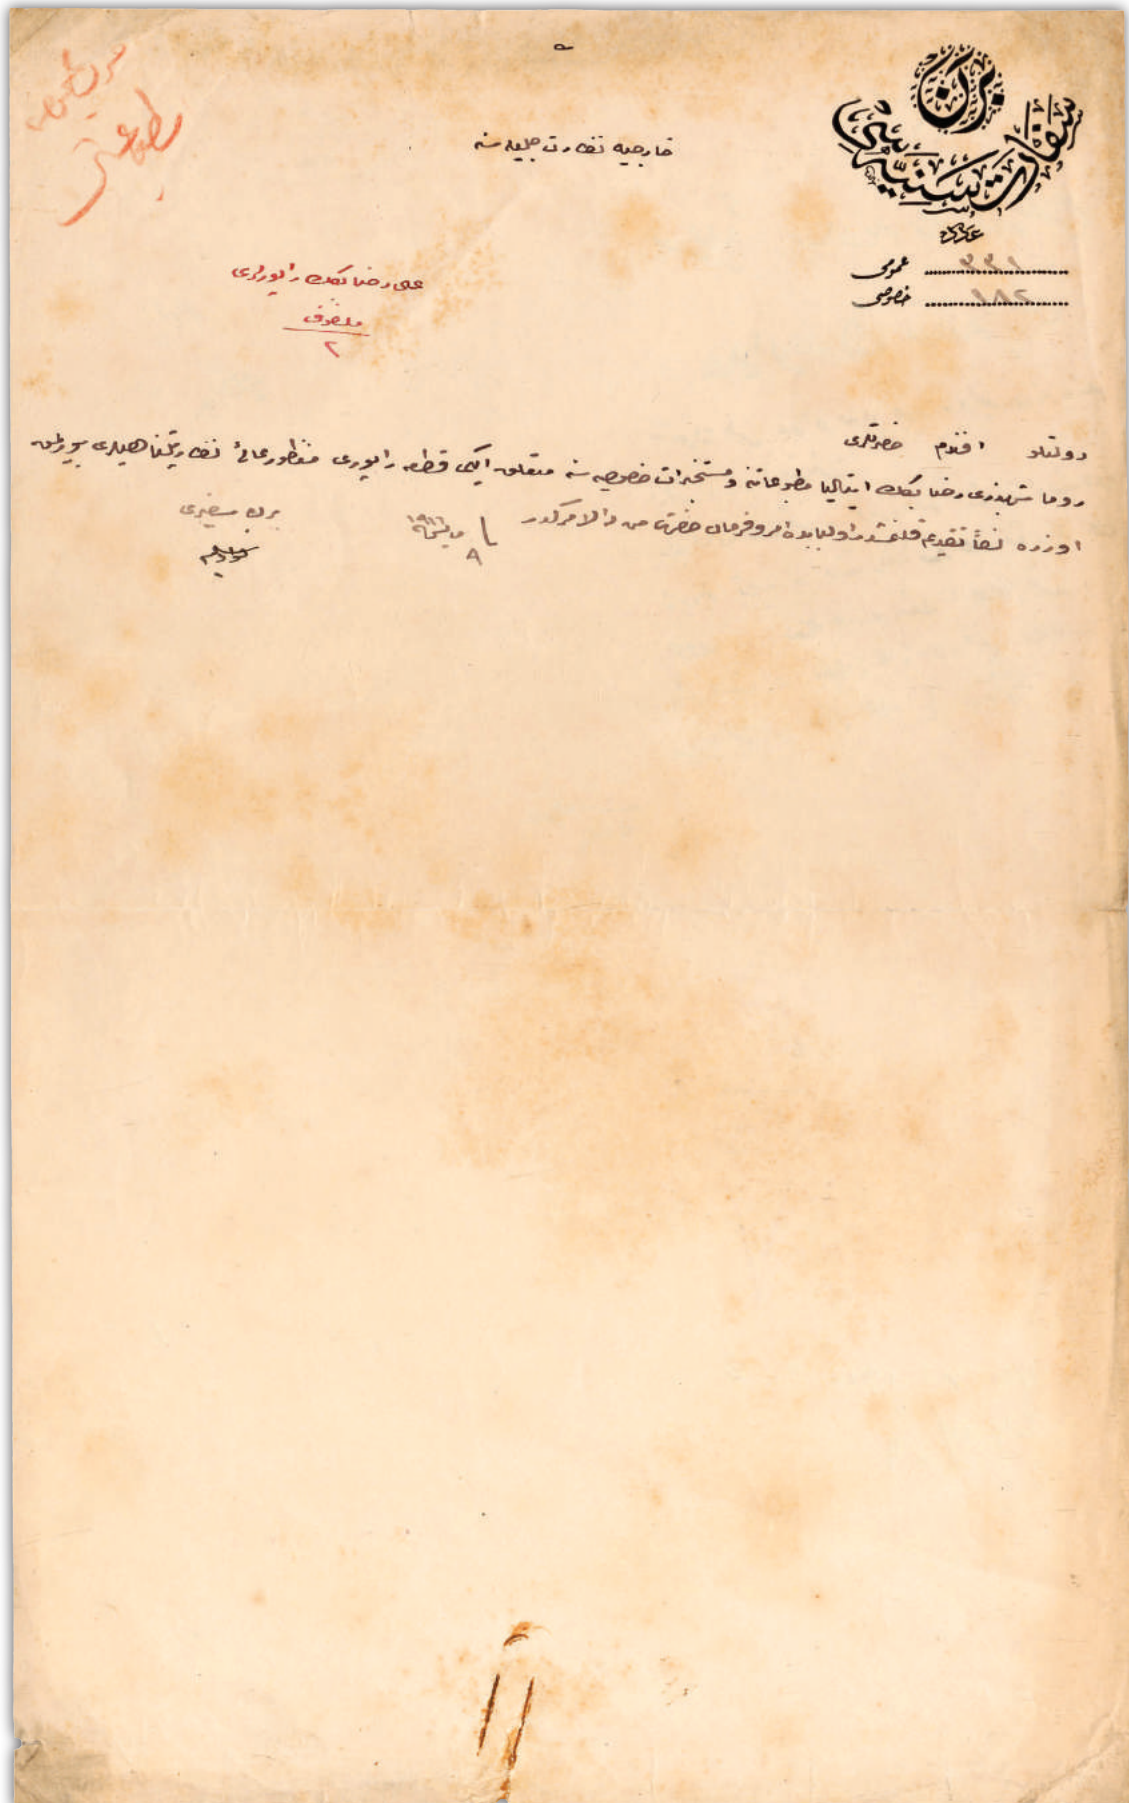 برن
سفارت سنیه سی
عدد
عمومی ۳۳۱
خصوصی ۱۸۲
خارجیه نظارت جلیله سنه
علی رضا بكك راپورلری
ملفوف
۲
دولتلو افندم حضرتلری
روما شهبندری رضا بكك ایتالیا مطبوعاتنه و مستخبرات خصوصیه سنه متعلق ایكی قطعه راپوری منظور عالئ نظارتپناهیلری بیورلمق
اوزره لفاً تقدیم قلنمشدر اولبابده امر و فرمان حضرت من له الامركدر
۹ ۱۹۱۱
برن سفیری